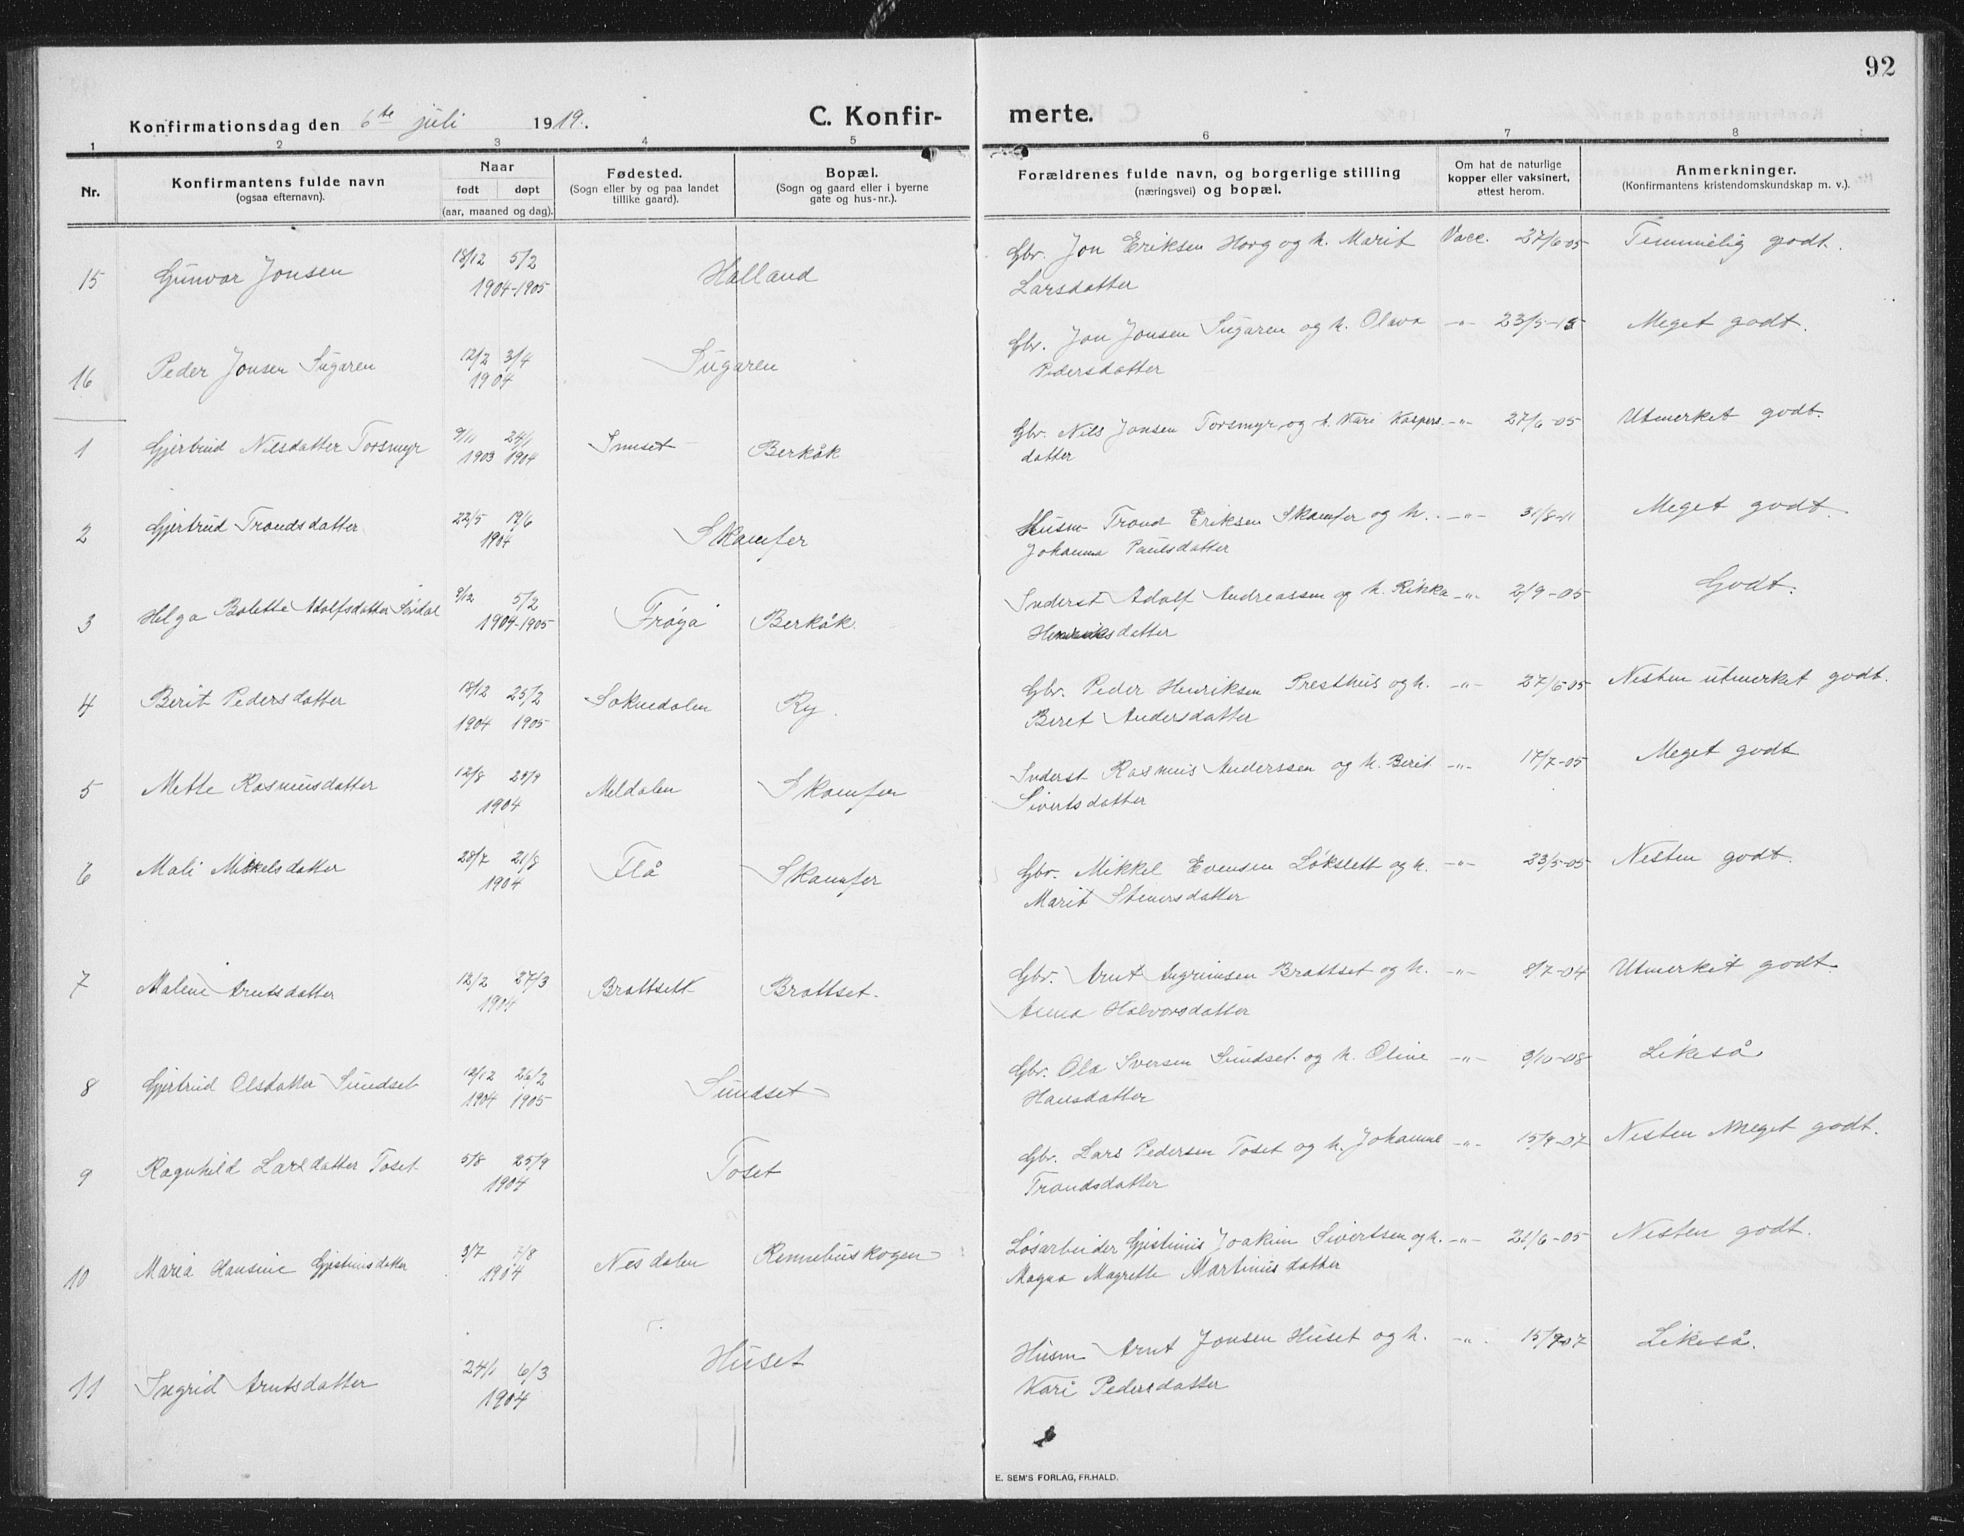 92
Konfirmationsdag den 6te juli 1919.
C. Konfir-
merte.
1 2 3 4 5 6 7 8
Nr.
Konfirmantens fulde navn
(ogsaa efternavn).
Naar
født døpt
(aar, maaned og dag).
Fødested.
(Sogn eller by og paa landet
tillike gaard).
Bopæl.
(Sogn og gaard eller i byerne
gate og hus-nr.).
Forældrenes fulde navn, og borgerlige stilling
(næringsvei) og bopæl.
Om hat de naturlige
kopper eller vaksinert,
attest herom.
Anmerkninger.
(Konfirmantens kristendomskundskap m. v.).
15 Gunvor Jonsen 18/12 5/2 Halland Gbr. Jon Eriksen Horg og h. Marit Vacc. 27/6-05 Temmelig godt.
1904-1905 Larsdatter
16 Peder Jonsen Sugaren 12/2 3/4 Sugaren Gbr. Jon Jonsen Sugaren og h. Olava -"- 23/5-15 Meget godt.
1904 Pedersdatter
1 Gjertrud Nilsdatter Torsmyr 9/11 24/1 Innset Berkåk Gbr. Nils Jonsen Torsmyr og h. Kari Kaspers- -"- 27/6-05 Utmerket godt.
1903 1904 datter
2 Gjertrud Trondsdatter 22/5 19/6 Skamfer Husm Trond Eriksen Skamfer og h. -"- 31/8-11 Meget godt
1904 Johanna Paulsdatter
3 Helga Bolette Adolfsdatter 9/12 5/2 Frøya Berkåk Inderst Adolf Andreassen og h. Rikka -"- 2/9-05 Godt.
1904-1905 Henriksdatter
4 Berit Pedersdatter 18/12 25/2 Soknedalen Ry. Gbr. Peder Henriksen Presthus og h. -"- 27/6-05 Nesten utmerket godt.
1904 1905 Beret Andersdatter
5 Mette Rasmusdatter 12/8 29/9 Meldalen Skamfer Inderst Rasmus Anderssen og h. Berit -"- 17/7-05 Meget godt
1904 Sivertsdatter
6 Mali Mikkelsdatter 28/7 21/8 Flå Skamfer Gbr. Mikkel Evensen Løkslett og h. -"- 23/5-05 Nesten godt.
1904 Marit Steinersdatter
7 Malene Arntsdatter 12/2 27/3 Brattsett Brattset. Gbr. Arnt Ingrimsen Brattset og h. -"- 8/7-04 Utmerket godt
1904 Anna Halvorsdatter
8 Gjertrud Olsdatter Sundset 12/12 26/2 Sundset Gbr. Ola Iversen Sundset og h. Oline -"- 9/10-08 Likeså
1904 1905 Hansdatter
9 Ragnhild Larsdatter Toset 5/8 25/9 Toset Gbr. Lars Pedersen Toset og h. Johanne -"- 15/9-07 Nesten meget godt.
1904 Trondsdatter
10 Maria Hansine Gjestinusdatter 3/7 7/8 Nesdalen Rennebuskogen Løsarbeider Gjestinus Joakim Sivertsen og h. -"- 21/6-05 Nesten godt.
1904 Magna Magrette Martinusdatter
11 Ingrid Arntsdatter 24/1 6/3 Huset Husm Arnt Jonsen Huset og h. -"- 15/9-07 Likeså.
1904 Kari Pedersdatter
E. SEM'S FORLAG, FR.HALD.